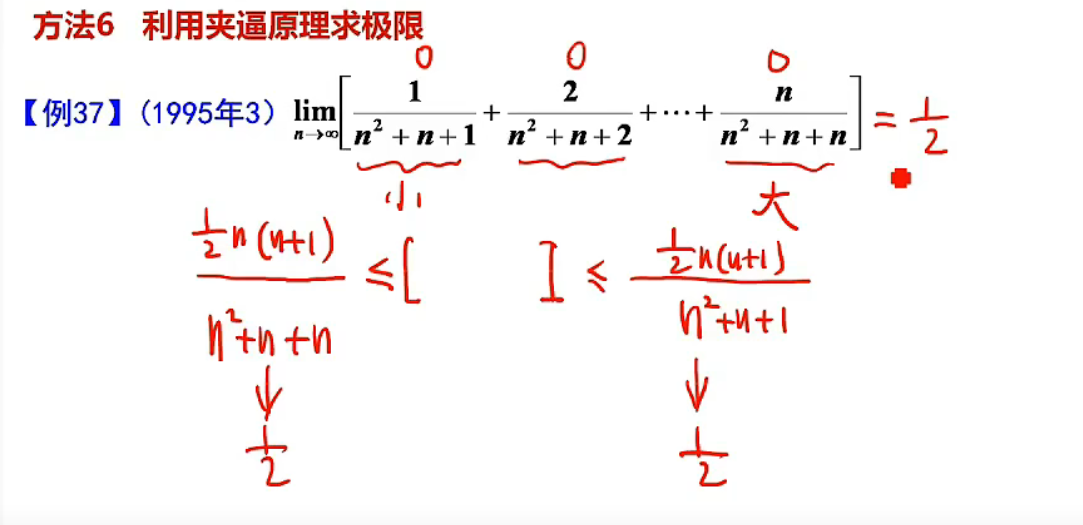 方法6 利用夹逼原理求极限
0 0 0
【例37】(1995年3) lim_{n→∞} [ 1/(n²+n+1) + 2/(n²+n+2) + ⋯ + n/(n²+n+n) ] = 1/2
小 大
(½n(n+1))/(n²+n+n) ≤ [ ] ≤ (½n(n+1))/(n²+n+1)
↓ ↓
1/2 1/2